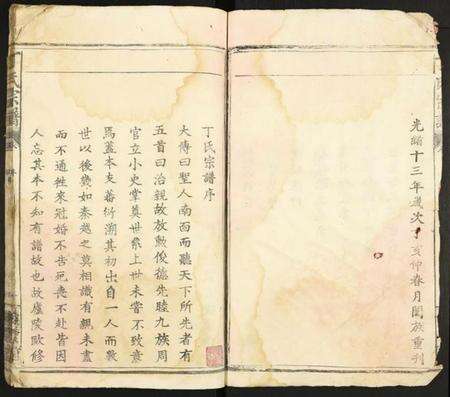 光緒十三年歲次丁亥仲春月闔族重刊
丁氏宗譜序
大傳曰聖人南面而聽天下所先者有
五首曰治親故放勲俊德先睦九族周
官立小史掌奠世系上世未嘗不致意
焉蓋本支蕃衍溯其初出自一人而數
世以後幾如秦越之莫相識有親未盡
而不通往來冠婚不告死喪不赴皆因
人忘其本不知有譜故也故廬陵歐修
氏宗譜